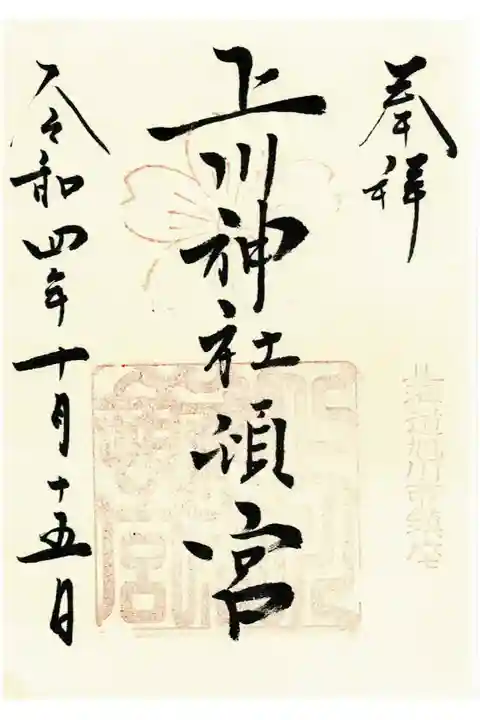 奉拝
北海道旭川市鎮座
上川神社頓宮
令和四年十月十五日